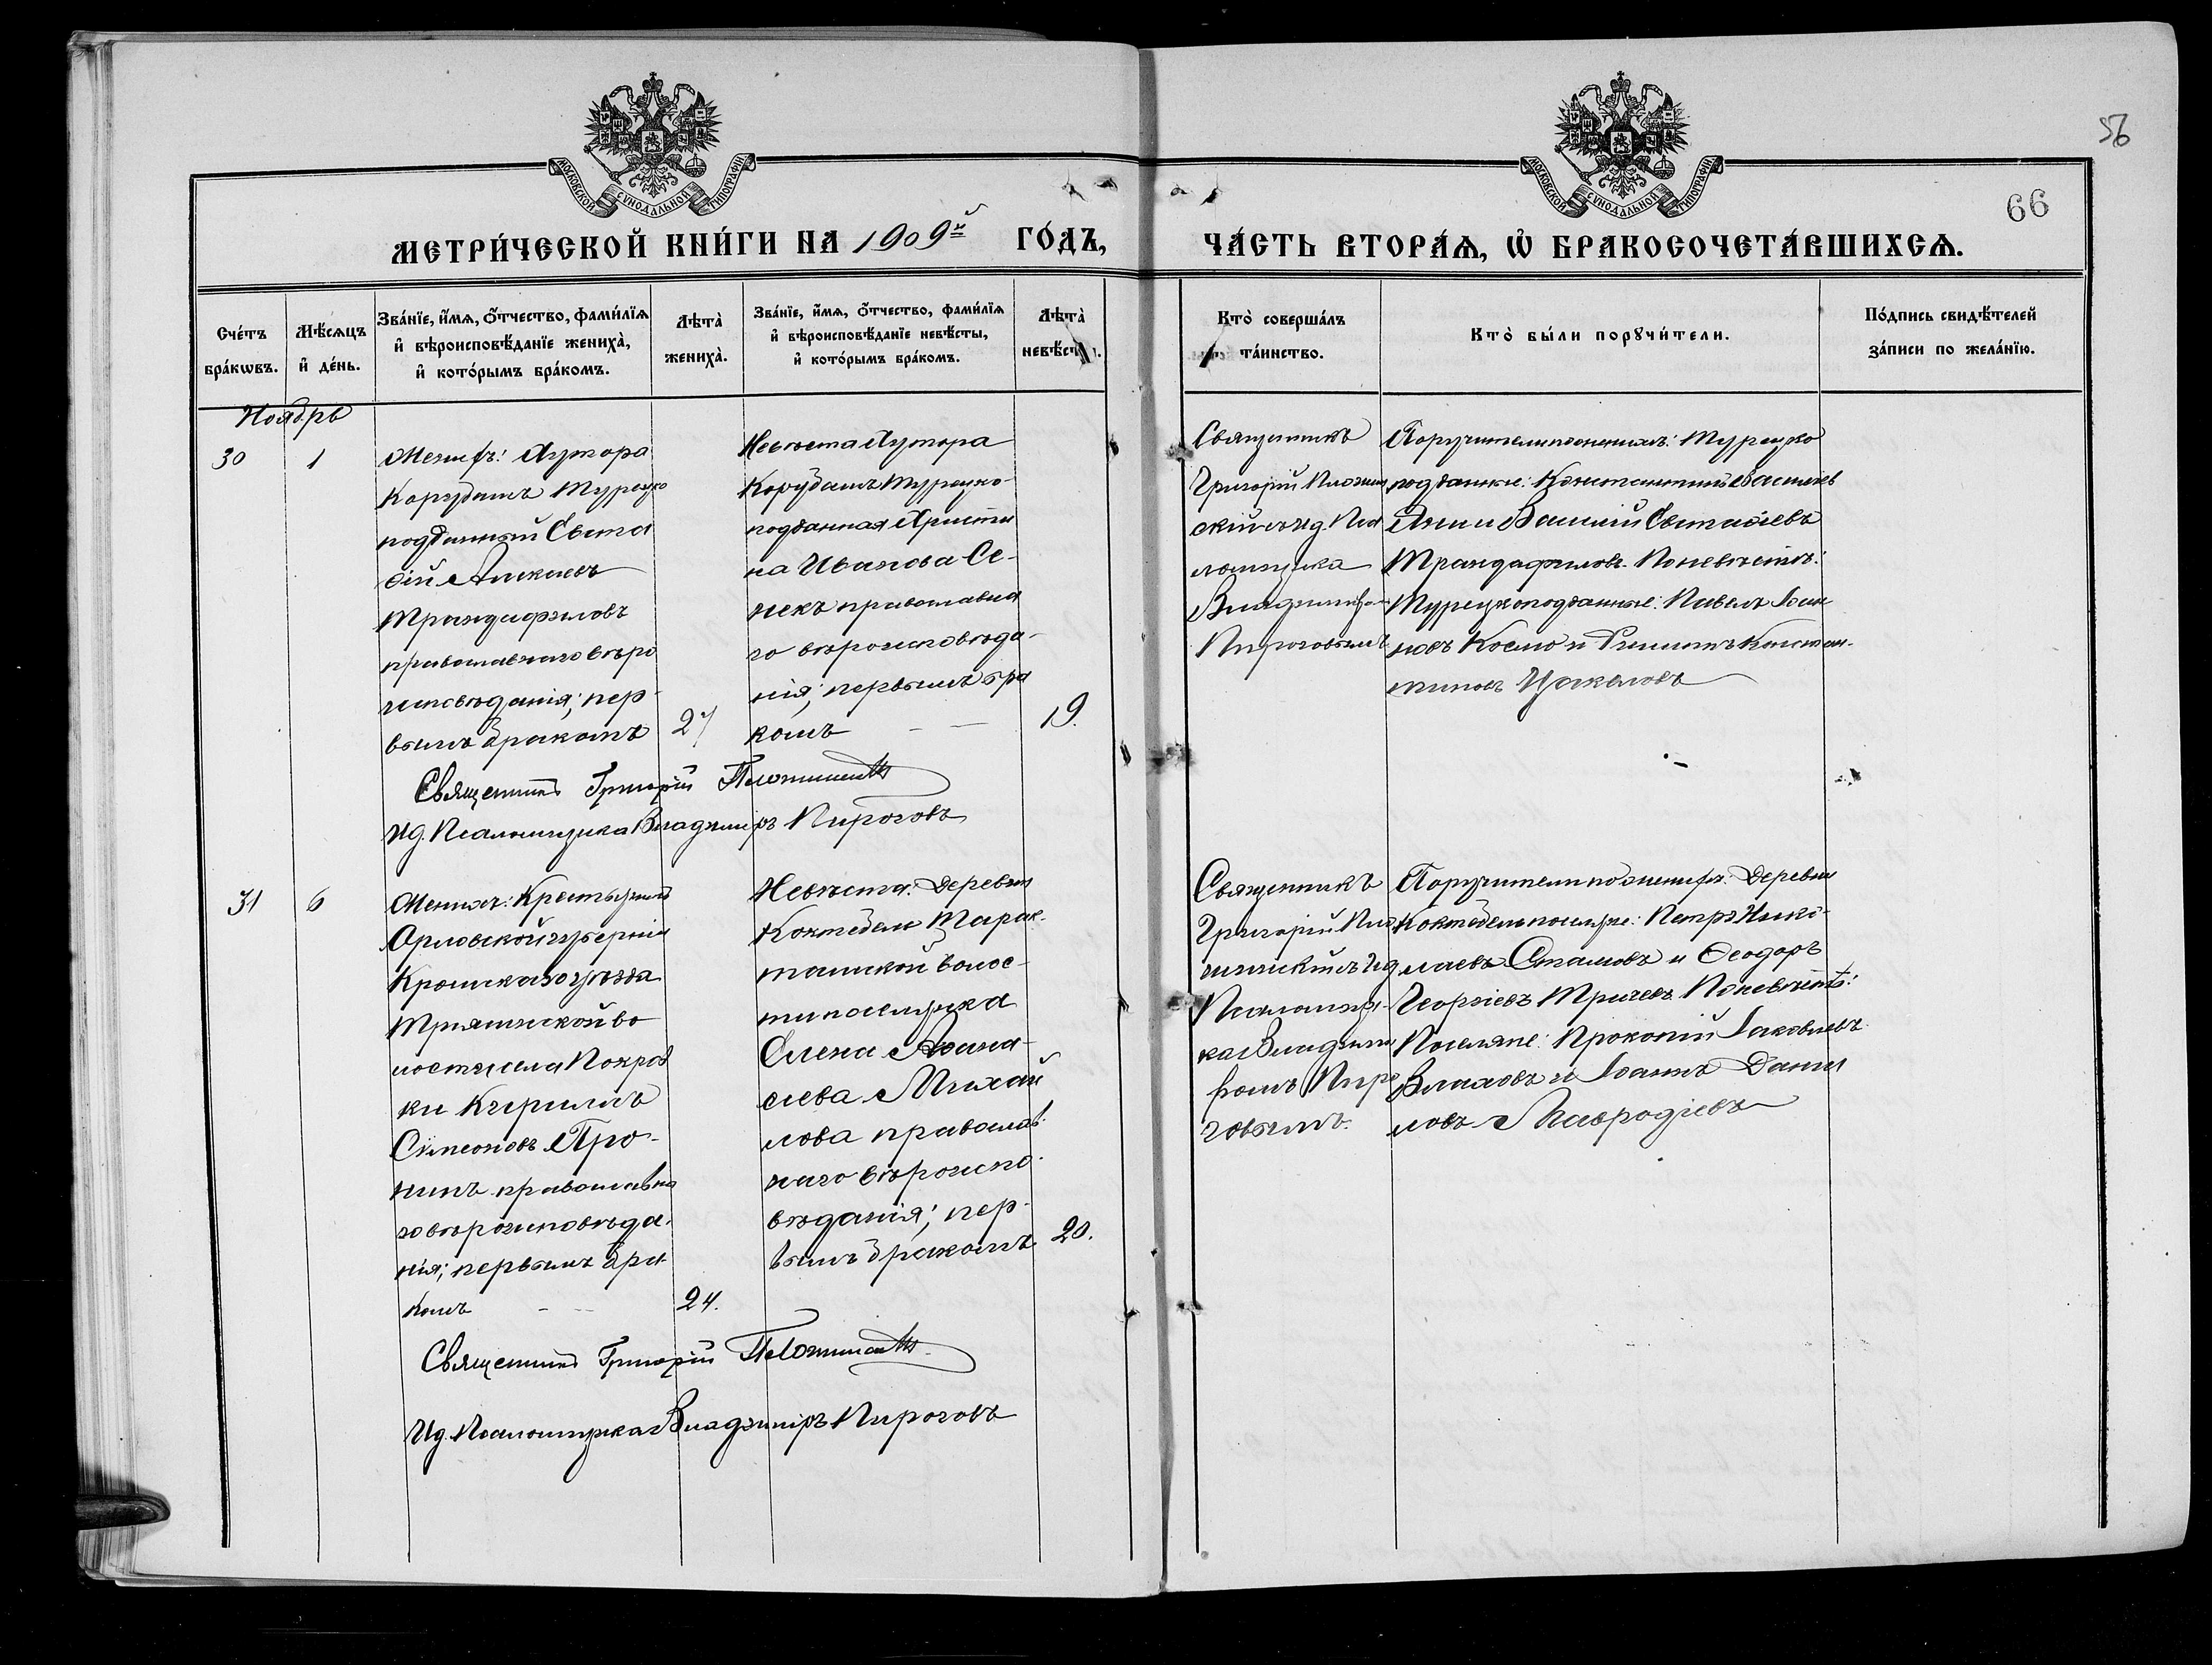 56
66
МОСКОВСКОЙ СУНОДАЛЬНОЙ ТИПОГРАФІИ
МОСКОВСКОЙ СУНОДАЛЬНОЙ ТИПОГРАФІИ
МЕТРИ́ЧЕСКОЙ КНИ́ГИ НА 1909й ГО́ДЪ,
ЧА́СТЬ ВТОРА́Ѧ, Ѽ БРАКОСОЧЕТА́ВШИХСѦ.
Сче́тъ бра́кѡвъ.
Мѣ́сѧцъ и҆ де́нь.
Зва́нїе, и҆́мѧ, ѻ҆́тчество, фами́лїѧ и҆ вѣроисповѣ́данїе жениха̀, и҆ кото́рымъ бра́комъ.
Лѣта̀ жениха̀.
Зва́нїе, и҆́мѧ, ѻ҆́тчество, фами́лїѧ и҆ вѣроисповѣ́данїе невѣ́сты, и҆ кото́рымъ бра́комъ.
Лѣта̀
Кто̀ соверша́лъ та́инство.
Кто̀ бы́ли порꙋчи́тели.
По́дпись свидѣ́телей за́писи по жела́нїю.
Ноябрь
30
1
Женихъ: Хутора
Корубашъ Турецко
подданный Евста
фій Алексіевъ
Трандафиловъ
православнаго вѣро
исповѣданія; пер-
вымъ бракомъ
27
Невѣста Хутора
Корубашъ Турецко-
подданная Христи
на Иванова Се-
некъ православна
го вѣроисповѣда-
нія; первымъ бра
комъ
19.
Священникъ
Григорій
скій съ Ид. Пса
ломщика
Владиміром
Пироговымъ
Поручители по женихѣ: Турецко
подданные: Константинъ Васильев
и Василій Евстафіевъ
Трандафиловъ. По невѣстѣ:
Турецкоподданные: Павелъ Іоан
новъ Космо и Константи-
новъ
Священникъ Григорій
Ид. Псаломщика Владиміръ Пироговъ
31
6
Женихъ: Крестьянинъ
Орловской губерніи
Кромскаго уѣзда
во
лости села Покров
ки Кириллъ
Симеоновъ Про-
нинъ православна
го вѣроисповѣда-
нія; первымъ бра
комъ
24.
Невѣста: Деревни
Коктебель Тарак-
ташской волос-
ти поселянка
Елена Аѳана-
сіева Михай
лова православ-
наго вѣроиспо-
вѣданія; пер-
вымъ бракомъ
20.
Священникъ
Григорій
съ Ид
Псаломщи-
ка Владими
ромъ Пиро
говымъ.
Поручители по женихѣ: Деревни
Коктебель поселяне: Петръ Нико-
лаевъ Стамовъ и Ѳеодоръ
Георгіевъ Тричевъ. По невѣстѣ:
Поселяне: Прокопій Іаковлевъ
Влаховъ и Іоаннъ Дани
ловъ Мавродіевъ
Священникъ Григорій
Ид. Псаломщика Владиміръ Пироговъ